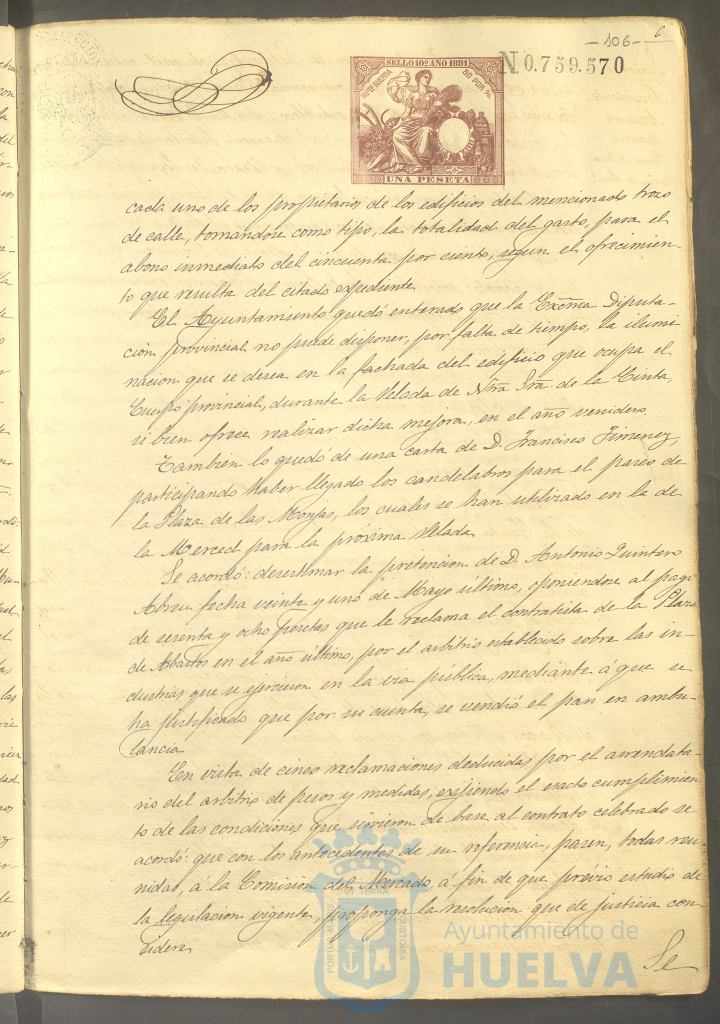 -106- 6
SELLO 10º AÑO 1881
Pº DE GUERRA 50 POR %
N. 0.759.570
UNA PESETA
cada uno de los propietarios de los edificios del mencionado trozo
de calle, tomandose como tipo, la totalidad del gasto, para el
abono inmediato del cincuenta por ciento, segun el ofrecimien-
to que resulta del citado expediente.
El Ayuntamiento quedó enterado que la Excma Diputa-
ción provincial no puede disponer, por falta de tiempo, la ilumi-
nacion que se desea en la fachada del edificio que ocupa el
Cuerpo provincial, durante la Velada de Ntra Sra de la Cinta,
si bien ofrece realizar dicha mejora, en el año venidero.
Tambien lo quedó de una carta de D. Francisco Jimenez,
participando haber llegado los candelabros para el paseo de
la Plaza de las Monjas, los cuales se han utilizado en la de
la Merced para la próxima Velada.
Se acordó: desestimar la pretencion de D. Antonio Quintero
Abreu fecha veinte y uno de Mayo último, oponiendose al pago
de sesenta y ocho pesetas que le reclama el contratista de la Plaza
de Abastos en el año último, por el arbitrio establecido sobre las in-
dustrias que se ejercieron en la via pública, mediante á que se
ha justificado que por su cuenta, se vendió el pan en ambu-
lancia.
En vista de cinco reclamaciones deducidas por el arrendata-
rio del arbitrio de pesos y medidas, exijiendo el exacto cumplimien-
to de las condiciones que sirvieron de base al contrato celebrado se
acordó: que con los antecedentes de su referencia, pasen, todas reu-
nidas, á la Comision del Mercado, á fin de que prévio estudio de
la legislacion vigente, proponga la resolucion que de justicia con-
sidere.
Se
Ayuntamiento de
HUELVA